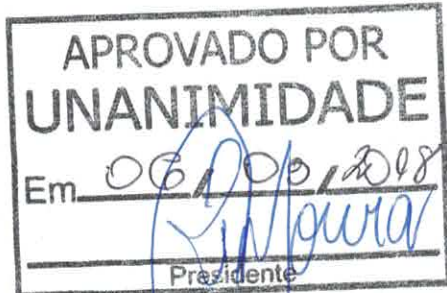 APROVADO POR
UNANIMIDADE
Em 06, 03, 2018
Presidente